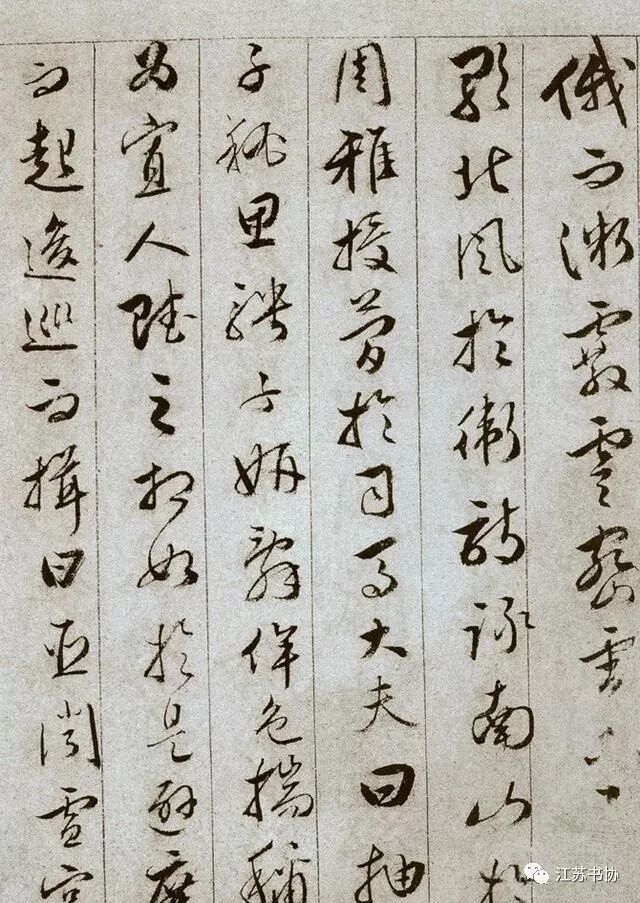 俄而微霰零密雪
歌北風於衛詩詠南山於
周雅授簡於司馬大夫曰抽
子秘思騁子妍辭侔色揣稱
為寡人賦之相如於是避席
而起逡巡而揖曰臣聞雪宮
江苏书协